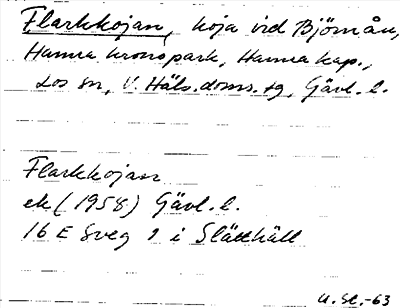 Flarkkojan, koja vid Björnån,
Hamra kronopark, Hamra kap.,
Los sn, V. Häls. doms. tg, Gävl. l.
Flarkkojan
ek (1958) Gävl. l.
16 E Sveg 9 i Slätthäll
U. Sl. -63